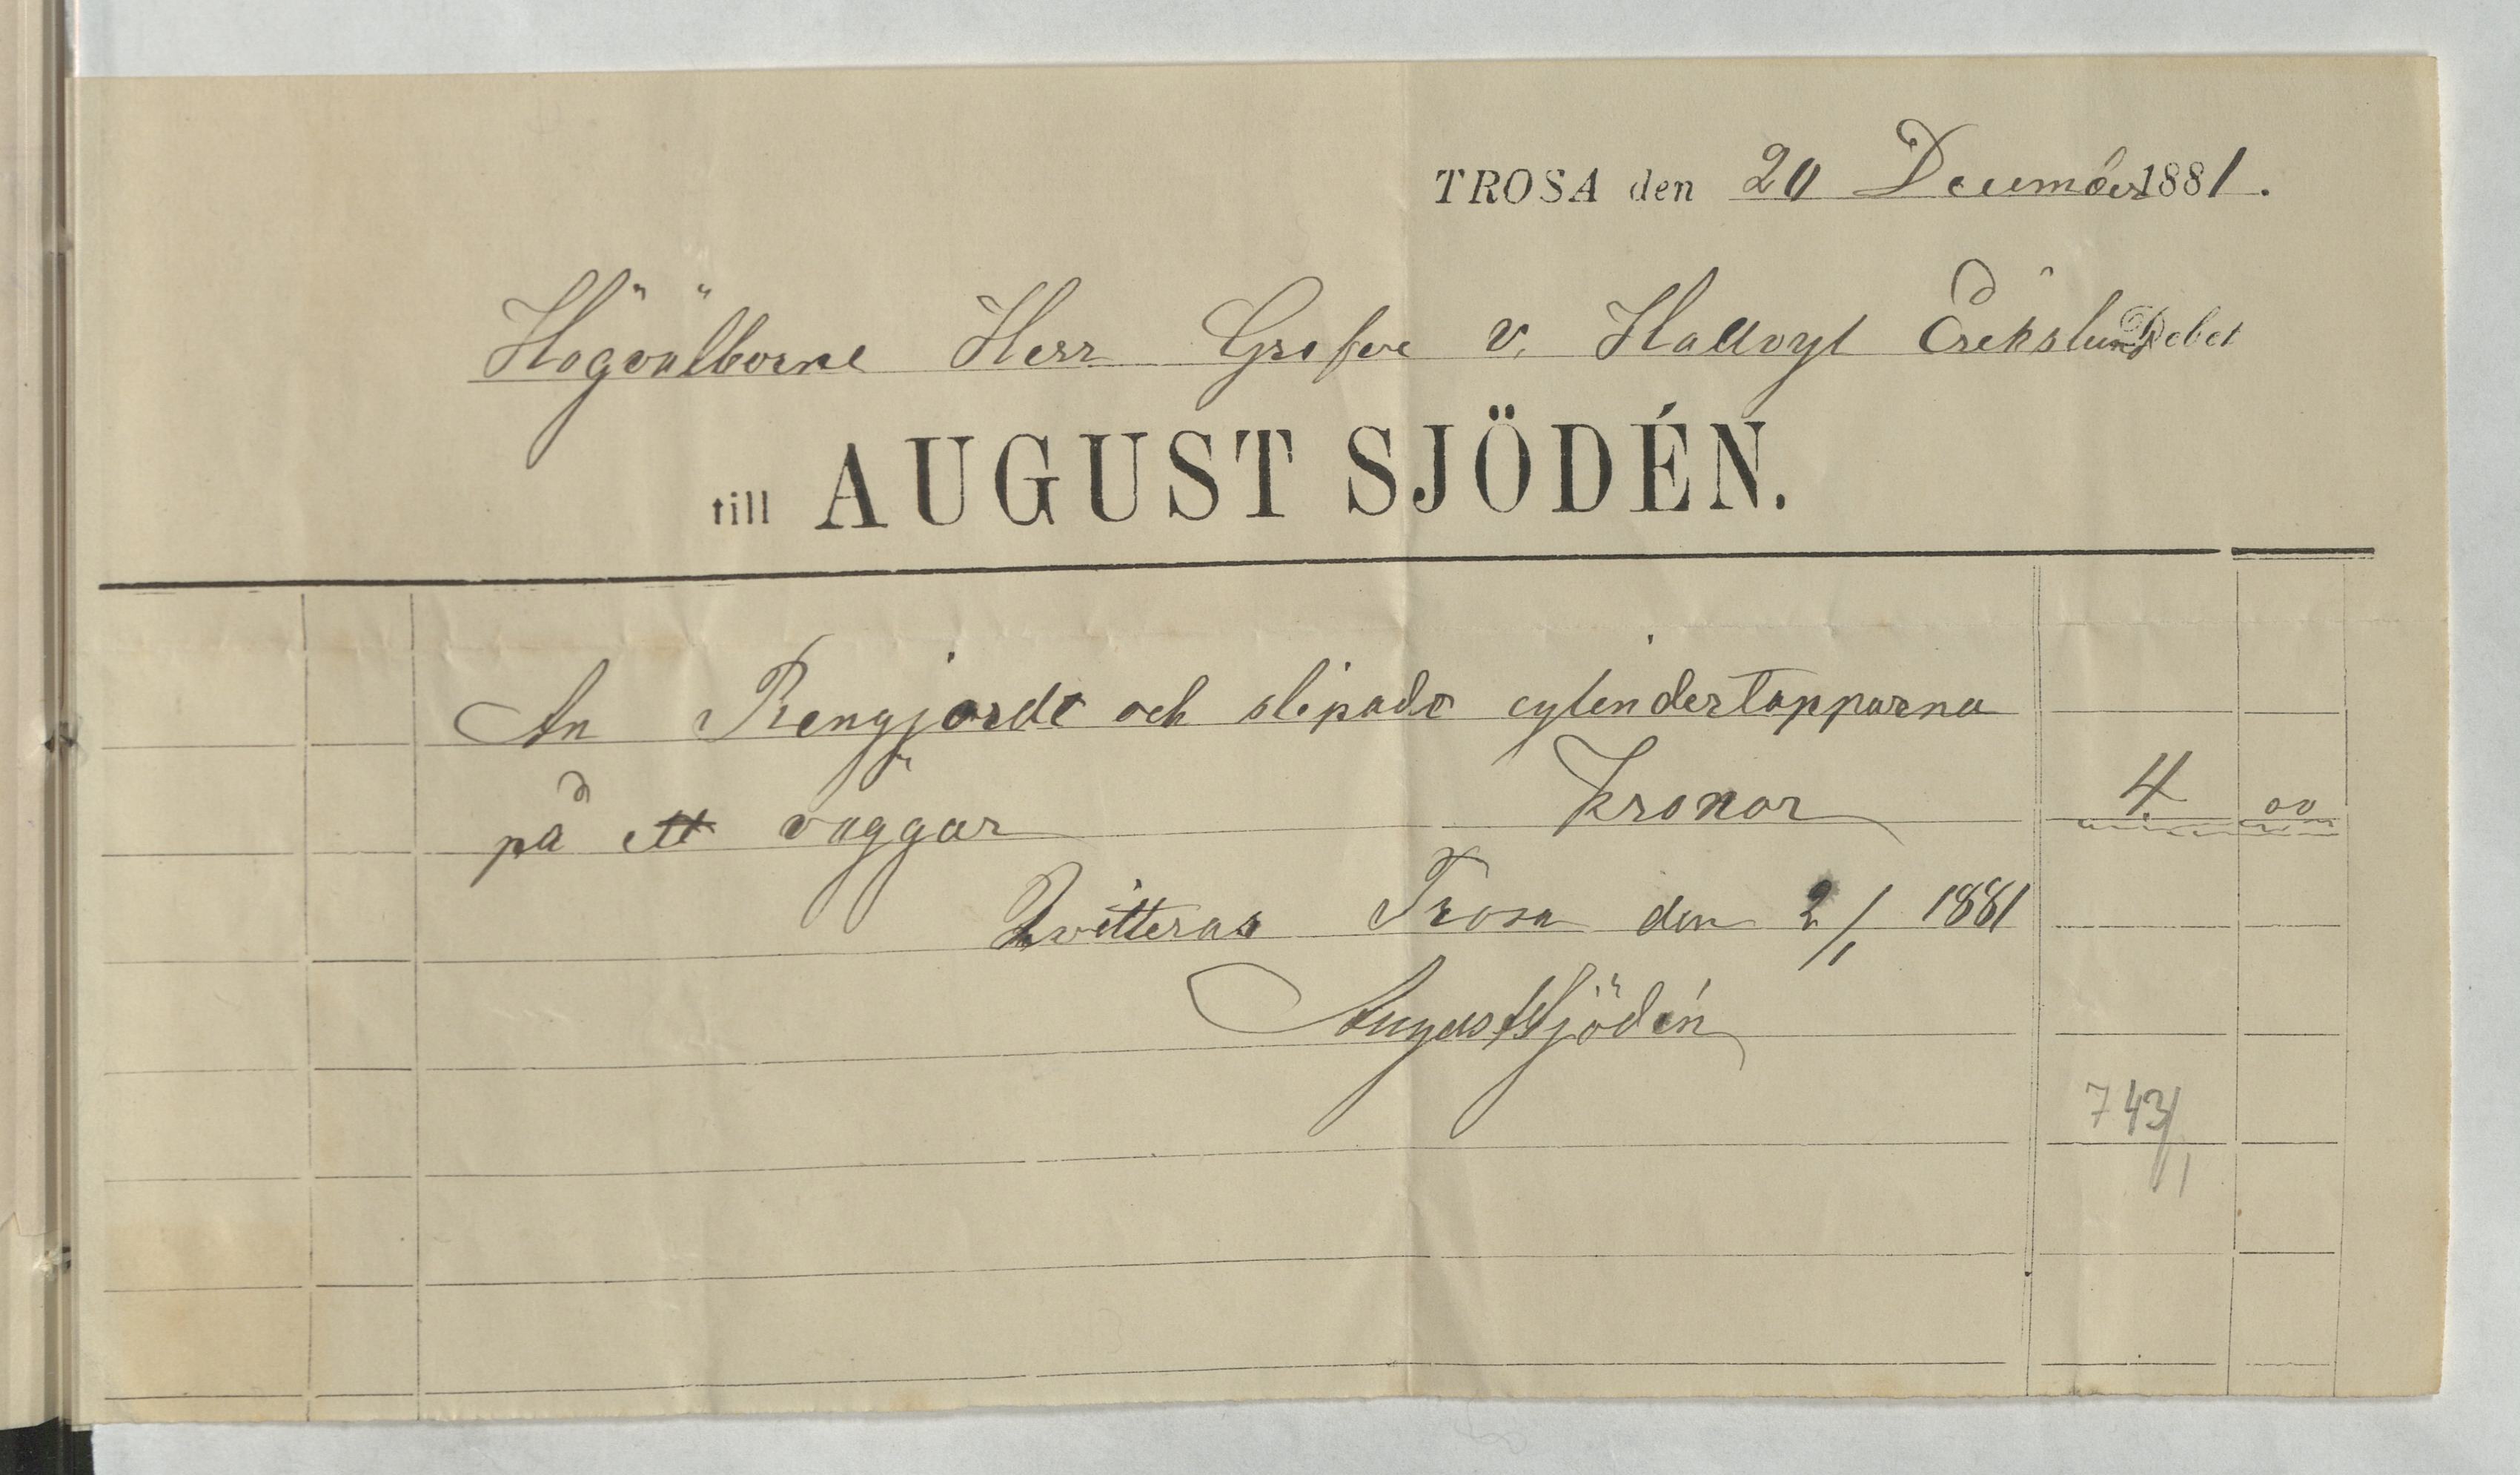 TROSA den 20 December 1881.
Högvälborne Herr Grefve v. Hallvyl Erikslund Debet
till AUGUST SJÖDÉN.
An Rengjorde och slipade cylindertapparna
på ett väggur Kronor 4. 00
Qvitteras Trosa den 2/1 1881
August Sjödén
743/1